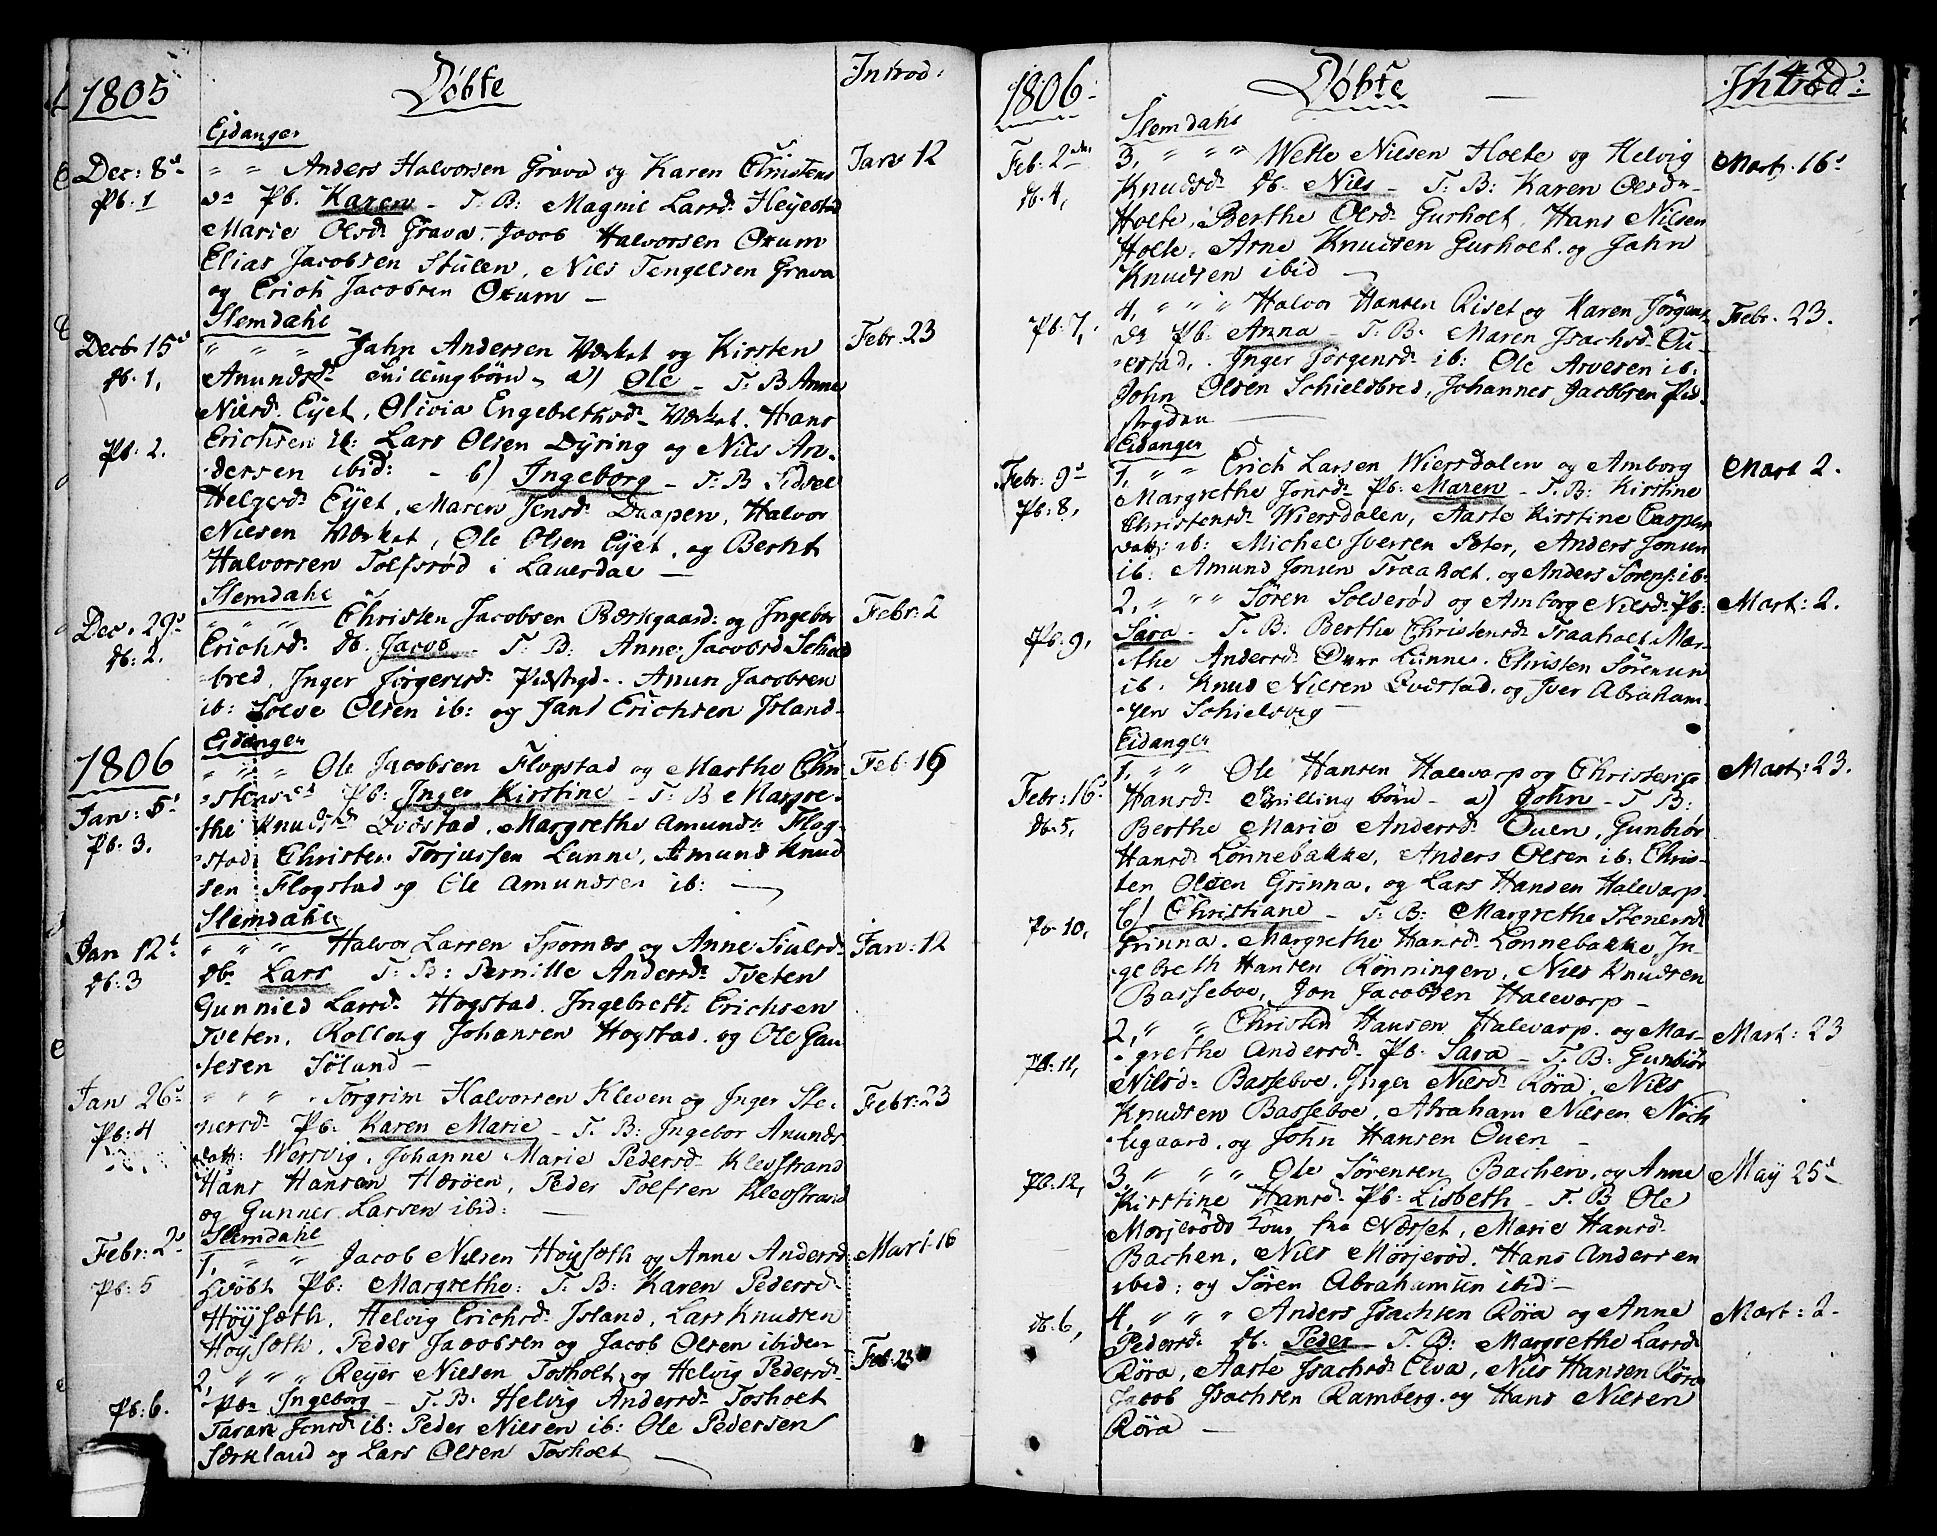 1805 Döbte Introd:
Ejdanger
Dec: 8d " " Anders Halvorsen Grava og Karen Christens Jan 12
Pb. 1 dr Pb. Karen - T. B: Magnil Larsd: Heÿestad
Marie Olsd: Grava. Jacob Halvorsen Oxum
Elias Jacobsen Stulen, Niels Tengelsen Grava
og Erich Jacobsen Oxum -
Slemdahl
Decb. 15d " " " Jahn Andersen Værket og Kirsten Febr. 23
Db. 1, Anundsdr Tvillingbörn, a) Ole - T. B Anne
Nilsd: Eÿet, Olivia Engebrethsdr Værket. Hans
Pb. 2. Erichsen ib: Lars Olsen Dÿring og Nils An-
dersen ibid: - b) Ingeborg - T. B Sidsel
Helgesdr Eÿet, Maren Jensdr Daapen, Halvor
Nielsen Værket, Ole Olsen Eÿet, og Bernt
Halvorsen Tolfsrød i Lauerdal -
Slemdahl
Dec. 29d " " " Christen Jacobsen Bækgaard: og Ingebor Febr: 2
Db: 2. Erichsdr Db. Jacob - T. B: Anne Jacobsd Schiel
bred, Inger Jörgensdr Pustrgd. Amun Jacobsen
ib: Solve Olsen ib: og Jans Erichsen Island-
Ejdanger
1806 " " " Ole Jacobsen Flogstad og Marthe Chri Feb. 16
Jan: 5d stensdr Pb: Inger Kirstine - T. B Margre-
Pb: 3. the Knudsdr Ovdstad, Margrethe Amundsdr Flog-
stad: Christen Torjussen Lunne, Amund Knud
sen Flogstad og Ole Amundsen ib: -
Slemdahl
Jan 12d " " " Halvor Larsen Spornæs og Anne Siulsdr Jan: 12
Db: 3 Db. Lars T. B: Pernille Andersdr Tveten
Gunnild Larsdr Hogstad. Ingebreth Erichsen
Tveten, Rollong Johansen Hogstad. og Ole Gau
tesen Sölund -
Jan 26d " " " Torgrim Halvorsen Kleven og Inger Ste- Febr: 23
Pb: 4 nersdr Pb: Karen Marie - T. B: Ingebor Anunds
datt: Wersvig, Johanne Marie Pedersdr Klevstrand
Hans Hansen Herøen, Peder Tolfsen Klevstrand
og Gunner Larsen ibid: -
Slemdahl
Febr: 2d 1, " " Jacob Nilsen Höÿsæth og Anne Andersd: Mart. 16
Pb: 5 döbt Pb: Margrethe: T. B: Karen Pedersdr
Höÿsæth, Helvig Erichsdr Island, Lars Knudsen
Hoÿsæth, Peder Jacobsen og Jacob Olsen ibiden
2, " " " Reÿer Nielsen Tosholt, og Helvig Pedersdr Feb. 23
Pb: 6. Pb. Ingeborg - T. B: Helvig Andersdr Tosholt
Taran Jensdr ib: Peder Nielsen ib: Ole Pedersen
Særkland og Lars Olsen Tosholt
1806 Döbte - Introd:
Slemdahl
Feb. 2den 3, " " " Wetle Nielsen Holte og Helvig Mart. 16d
Db. 4, Knudsdr Db. Nils - T. B: Karen Olsdr
Holte, Berthe Olsdr Gurholt, Hans Nilsen
Holte, Arne Knudsen Gurholt og Jahn
Knudsen ibid -
4, " " " Halvor Hansen Riset og Karen Jörgens Febr. 23.
Pb: 7, dr Pb: Anna - T. B. Maren Isachsdr
Inger Jörgensdr ib: Ole Arvesen ib:
John Olsen Schielsbred, Johannes Jacobsen Pu-
strgden
Eidanger
Febr. 9d 1, " " Erich Larsen Wiersdalen og Amborg Mart 2.
Pb: 8, Margrethe Jonsdr Pb: Maren - T. B: Kirstine
Christensdr Wiersdalen, Aaste Kirstine Casper
datt: ib: Michel Iversen Sæter, Anders Jonsen
ib: Amund Jonsen Traaholt, og Anders Sörens: ib.
2, " " " Sören Solverød og Amborg Nilsdr Pb: Mart: 2.
Pb: 9, Sara - T. B. Berthe Christensdr Traaholt Mar-
the Andersdr Over Lunne. Christen Sörensen
ib. Knud Nielsen Ovdstad, og Iver Abraham-
sen Schielsvig -
Eidanger
1, " " Ole Hansen Halevarp og Christence Mart: 23.
Febr: 16d Hansdr Tvilling börn - a) John - T. B:
Db: 5, Berthe Marie Andersdr Ouen, Gunbiör
Hansdr Lönnebakke, Anders Olsen ib: Chris-
ten Olsen Grinna, og Lars Hansen Halevarp.
Pb 10, b) Christiane - T. B: Margrethe Stenersdr
Grinna. Margrethe Hansdr Lonnebakke In-
gebreth Hansen Rönningen, Niels Knudsen
Basseboe, Jon Jacobsen Halevarp -
2, " " Christen Hansen Halevarp. og Mar- Mart: 23
Pb: 11, grethe Andersdr Pb: Sara - T. B: Gunbiör
Nilsdr Basseboe. Inger Nielsdr Röra, Niels
Knudsen Basseboe, Abraham Nielsen Noch
legaard, og John Hansen Ouen -
Pb: 12, 3, " " " Ole Sörensen Bachen, og Anne May 25d
Kirstine Hansdr Pb: Lisbeth - T. B Ole
Morjerøds Kone fra Næsset, Marie Hansdr
Bachen, Niels Mörjerød. Hans Andersen
ibid: og Sören Abrahamsen ibid -
4, " " " Anders Isachsen Röra og Anne Mart: 2-
Db. 6, Pedersdr Db. Peder - T. B: Margrethe Larsdr
Röra, Aaste Isachsdr Elva, Nils Hansen Röra
Jacob Isachsen Ramberg. og Hans Nielsen
Röra -